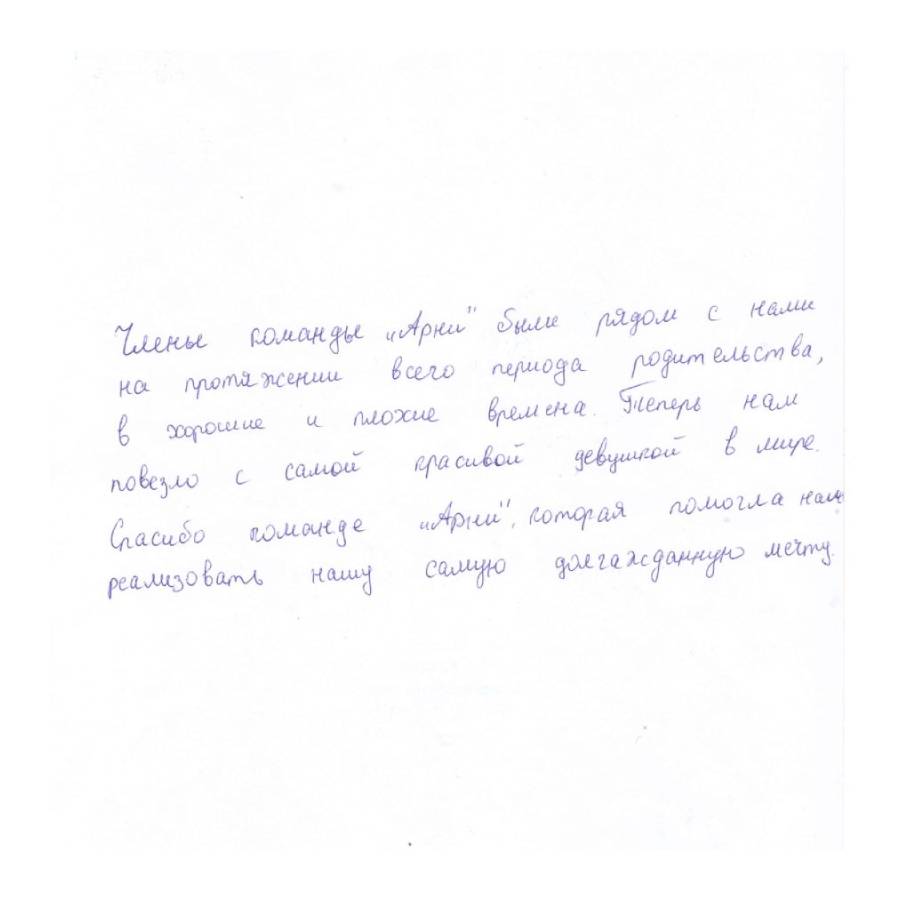 Члены команды „Арни" были рядом с нами
на протяжении всего периода родительства,
в хорошие и плохие времена. Теперь нам
повезло с самой красивой девушкой в мире.
Спасибо команде „Арни", которая помогла нам
реализовать нашу самую долгажданную мечту.